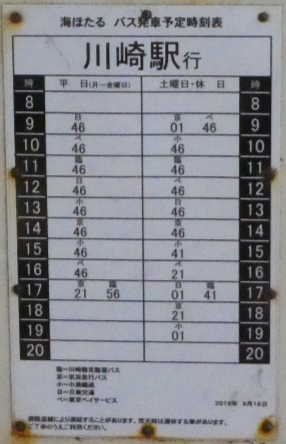 海ほたる バス発車予定時刻表
川崎駅行
時 平 日(月～金曜日) 土曜日・休 日 時
8 8
9 日46 京01 ペ46 9
10 ペ46 小46 10
11 臨46 臨46 11
12 日46 ペ46 12
13 小46 日46 13
14 京46 京46 14
15 小46 小41 15
16 ペ46 ペ21 16
17 京21 臨56 日01 臨41 17
18 京21 18
19 小01 19
20 20
臨＝川崎鶴見臨港バス
京＝京浜急行バス
小＝小湊鐵道
日＝日東交通
ペ＝東京ベイサービス
道路混雑により遅延することがあります。荒天時は運休する事があります。
ご了承のうえご利用ください。